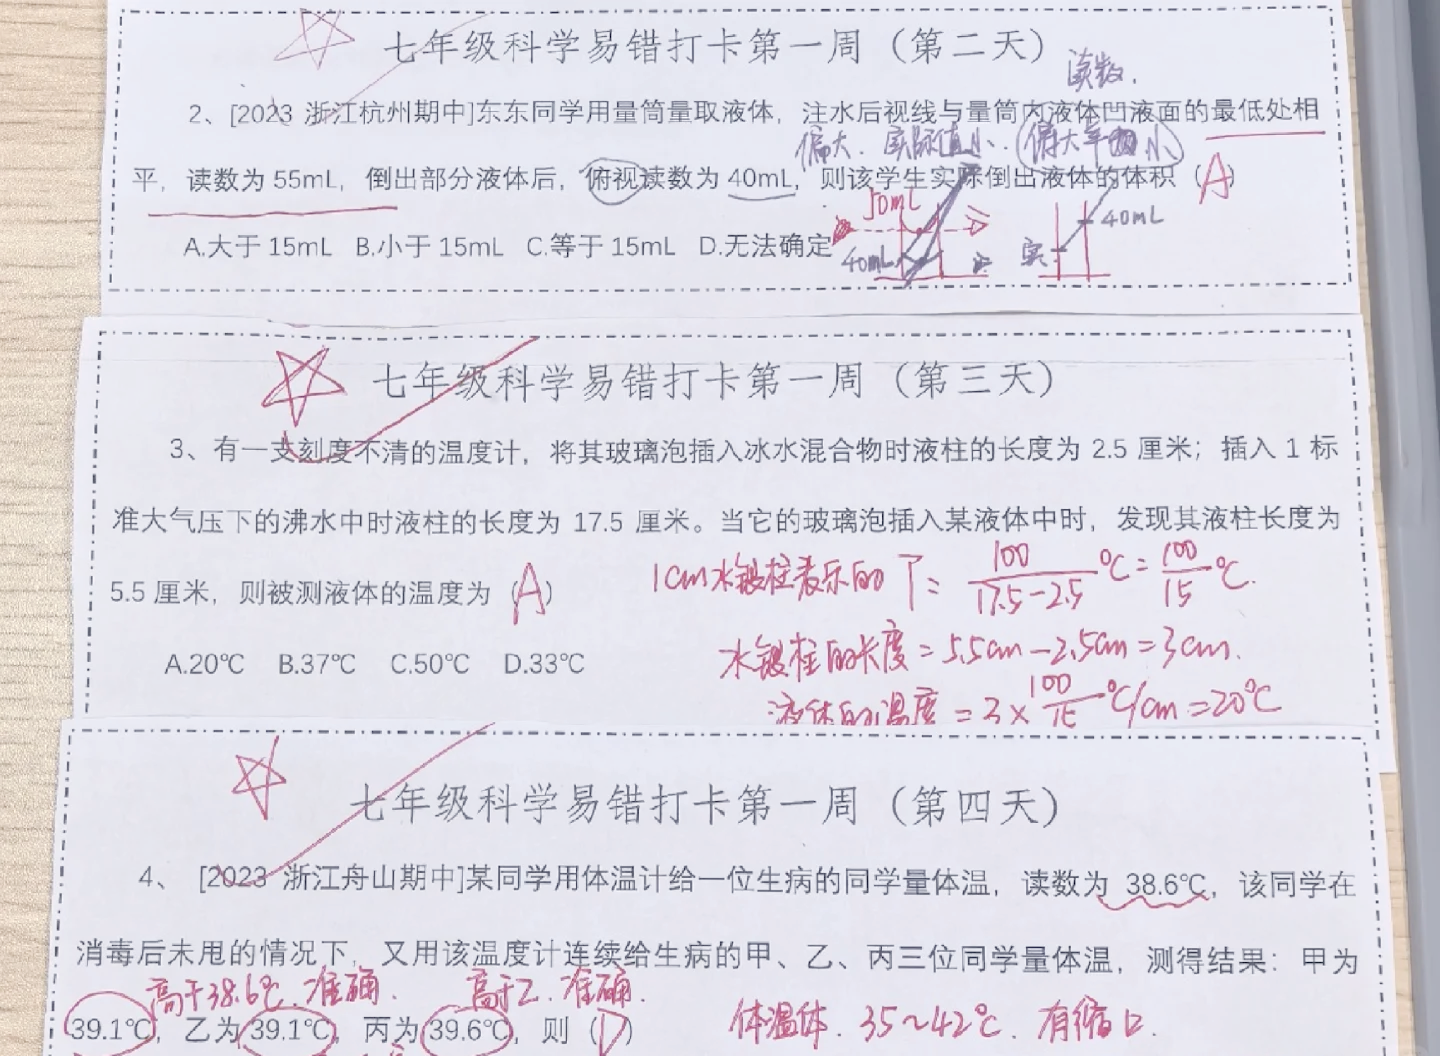 七年级科学易错打卡第一周（第二天）
读数.
2、[2023 浙江杭州期中]东东同学用量筒量取液体，注水后视线与量筒内液体凹液面的最低处相
偏大. 实际值小. 俯大平 小
平，读数为 55mL，倒出部分液体后，俯视读数为 40mL，则该学生实际倒出液体的体积（A）
50mL
40mL
A.大于 15mL B.小于 15mL C.等于 15mL D.无法确定
40mL 实
七年级科学易错打卡第一周（第三天）
3、有一支刻度不清的温度计，将其玻璃泡插入冰水混合物时液柱的长度为 2.5 厘米；插入 1 标
准大气压下的沸水中时液柱的长度为 17.5 厘米。当它的玻璃泡插入某液体中时，发现其液柱长度为
5.5 厘米，则被测液体的温度为（A）
1cm水银柱表示的 T = 100/(17.5-2.5) ℃ = 100/15 ℃.
水银柱的长度 = 5.5cm - 2.5cm = 3cm.
A.20℃ B.37℃ C.50℃ D.33℃
液体的温度 = 3 × 100/15 ℃/cm = 20℃
七年级科学易错打卡第一周（第四天）
4、 [2023 浙江舟山期中]某同学用体温计给一位生病的同学量体温，读数为 38.6℃，该同学在
消毒后未甩的情况下，又用该温度计连续给生病的甲、乙、丙三位同学量体温，测得结果：甲为
高于38.6℃. 准确. 高于乙. 准确.
39.1℃，乙为 39.1℃，丙为 39.6℃，则（D）
体温体. 35～42℃. 有缩口.